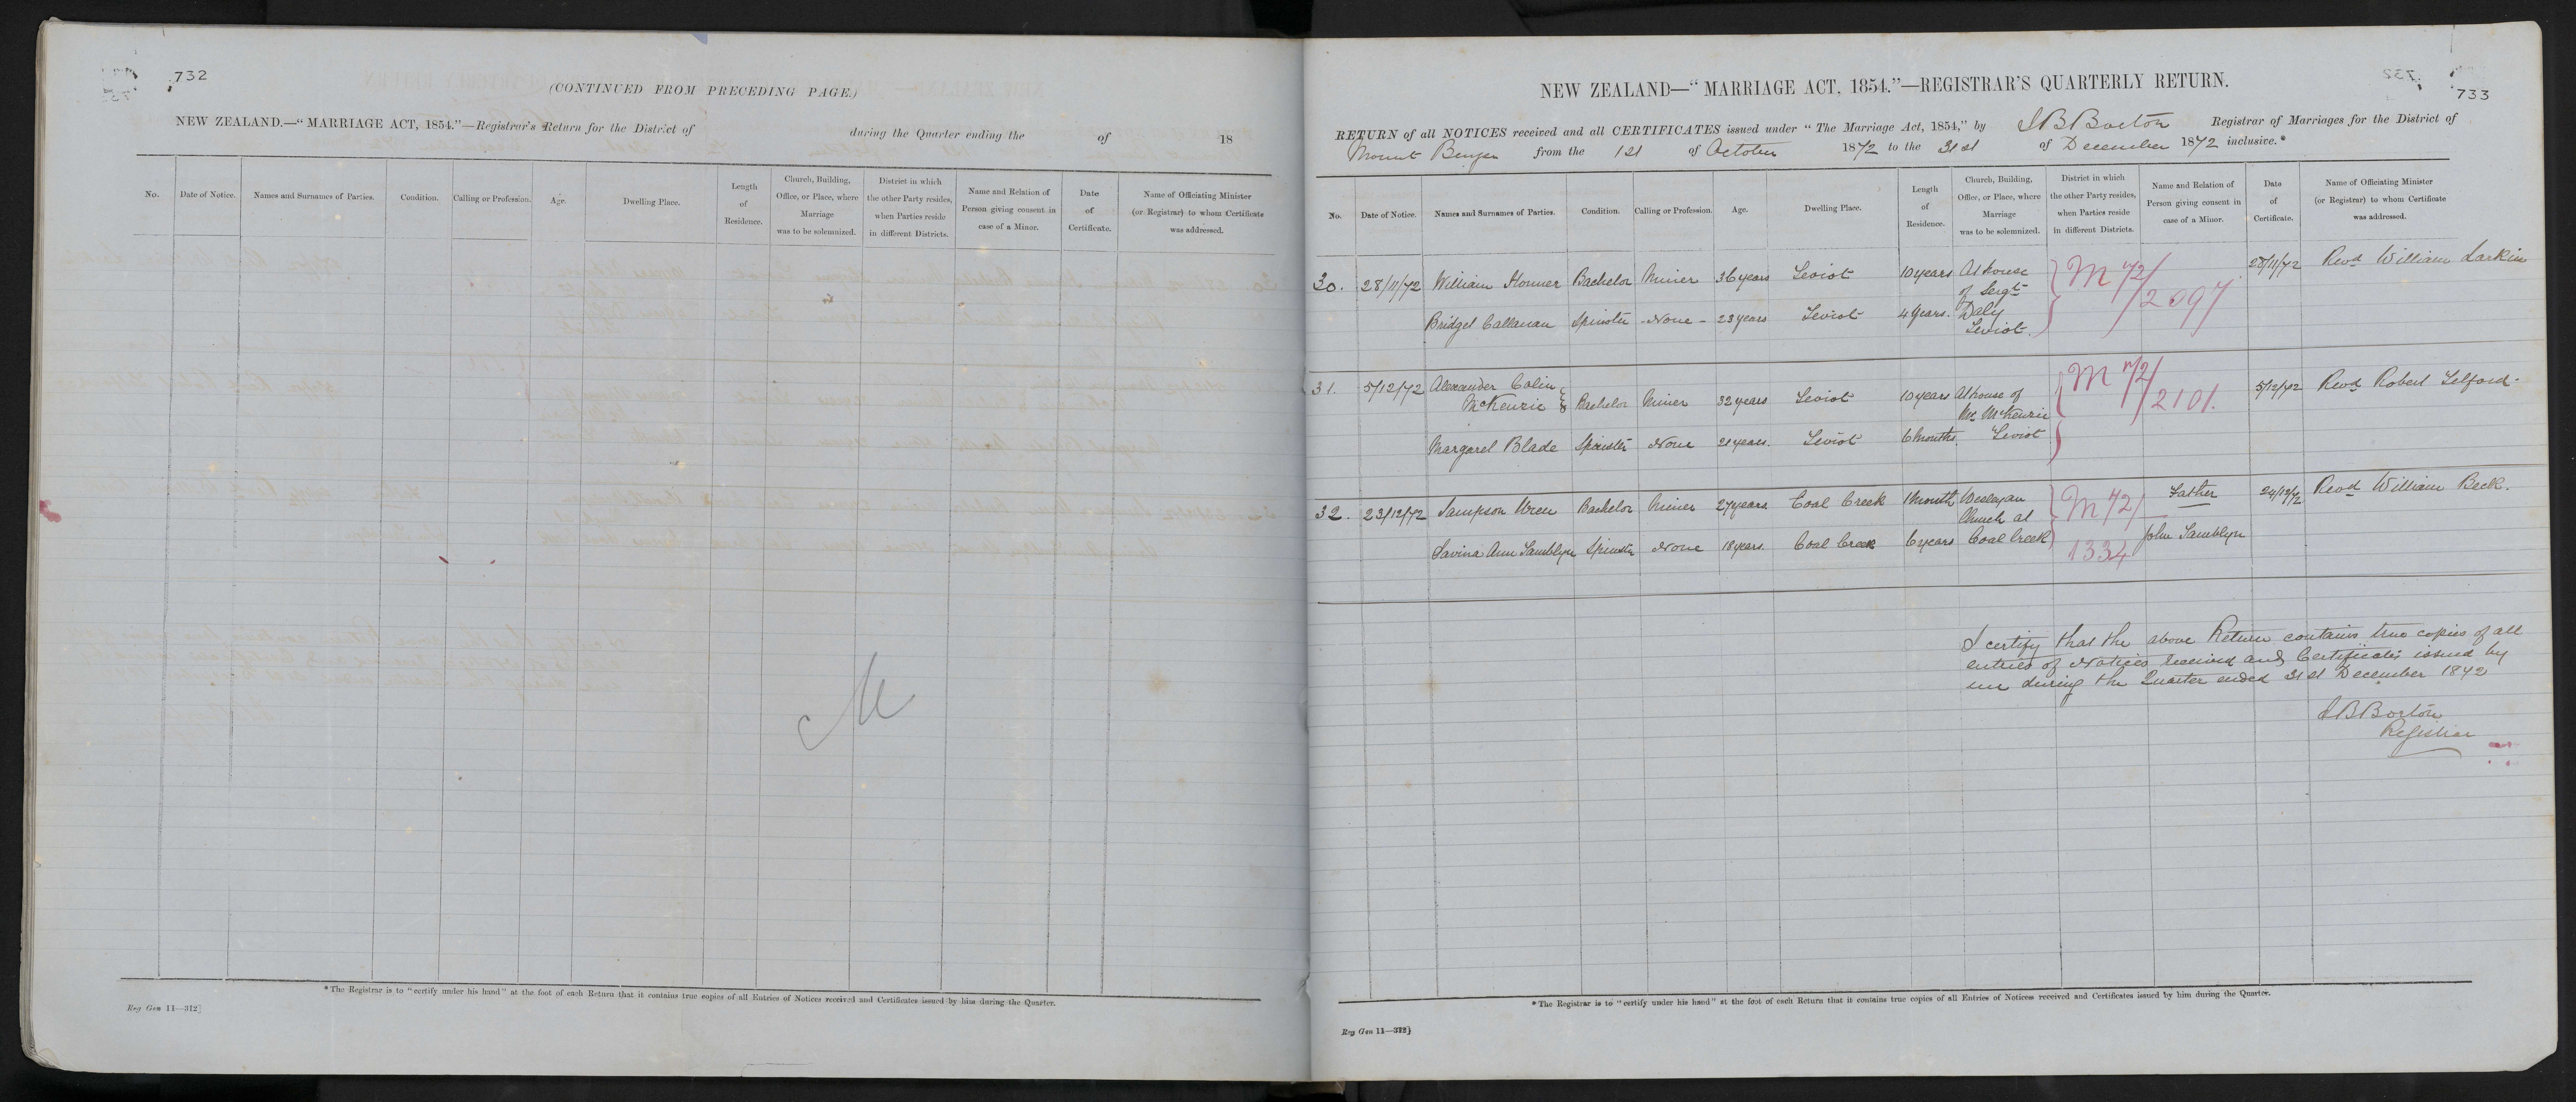 732
(CONTINUED FROM PRECEDING PAGE.)
NEW ZEALAND.—"MARRIAGE ACT, 1854."—Registrar's Return for the District of during the Quarter ending the of 18
No. Date of Notice. Names and Surnames of Parties. Condition. Calling or Profession. Age. Dwelling Place. Length of Residence. Church, Building, Office, or Place, where Marriage was to be solemnized. District in which the other Party resides, when Parties reside in different Districts. Name and Relation of Person giving consent in case of a Minor. Date of Certificate. Name of Officiating Minister (or Registrar) to whom Certificate was addressed.
M
*The Registrar is to "certify under his hand" at the foot of each Return that it contains true copies of all Entries of Notices received and Certificates issued by him during the Quarter.
Reg Gen 11—312]
733
NEW ZEALAND—"MARRIAGE ACT, 1854."—REGISTRAR'S QUARTERLY RETURN.
RETURN of all NOTICES received and all CERTIFICATES issued under "The Marriage Act, 1854," by J B Borton Registrar of Marriages for the District of
Mount Benger from the 1st of October 1872 to the 31st of December 1872 inclusive.*
No. Date of Notice. Names and Surnames of Parties. Condition. Calling or Profession. Age. Dwelling Place. Length of Residence. Church, Building, Office, or Place, where Marriage was to be solemnized. District in which the other Party resides, when Parties reside in different Districts. Name and Relation of Person giving consent in case of a Minor. Date of Certificate. Name of Officiating Minister (or Registrar) to whom Certificate was addressed.
30. 28/11/72 William Honner Bachelor Miner 36 years Teviot 10 years At house of Sergt M 72/2097 28/11/72 Revd William Larkin
Bridget Callanan Spinster - None - 23 years Teviot 4 years. Daly Teviot.
31. 5/12/72 Alexander Colin McKenzie Bachelor Miner 32 years Teviot 10 years At house of Mr McKenzie M 72/2101. 5/12/72 Revd Robert Telford.
Margaret Blade Spinster None 21 years. Teviot 6 months. Teviot
32. 23/12/72 Sampson Uren Bachelor Miner 27 years Coal Creek 1 month Wesleyan Church at M 72/1334 Father 24/12/72 Revd William Beck.
Savina Ann Tamblyn Spinster None 18 years. Coal Creek 6 years Coal Creek John Tamblyn
I certify that the above Return contains true copies of all
entries of Notices received and Certificates issued by
me during the Quarter ended 31st December 1872
J B Borton
Registrar
*The Registrar is to "certify under his hand" at the foot of each Return that it contains true copies of all Entries of Notices received and Certificates issued by him during the Quarter.
Reg Gen 11—312]